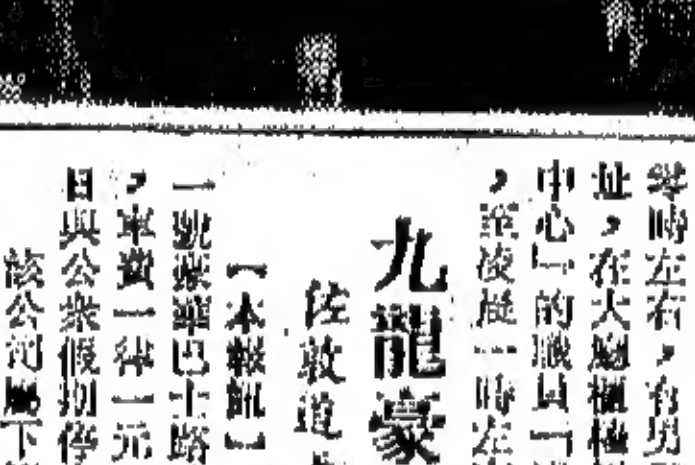 零時左右，有男
址，在大廳
中心」的職員一
，至凌晨一時左
九龍豪
佐敦道
【本報訊】
一號豪華巴士路
，車費一律一元
日與公衆假期停
該公司屬下